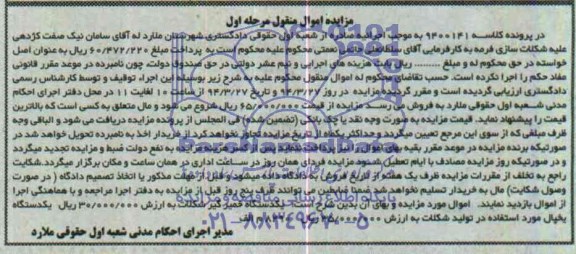 مزایده اموال منقول مرحله اول
در پرونده کلاسه ۹۴۰۰۱۴۱ به موجب اجرائیه صادره از شعبه اول حقوقی دادگستری شهرستان ملارد له آقای سامان نیک صفت کژدهی
علیه شکلات سازی فرمه به کارفرمایی آقای نعمتی محکوم علیه محکوم است به پرداخت مبلغ ۶۰/۴۷۲/۲۲۰ ریال به عنوان اصل
خواسته در حق محکوم له و مبلغ ........ ریال بابت هزینه های اجرایی و نیم عشر دولتی در حق صندوق دولت، چون نامبرده در موعد مقرر قانونی
مفاد حکم را اجرا نکرده است. حسب تقاضای محکوم له اموال منقول محکوم علیه به شرح زیر بوسیله این اجراء توقیف و توسط کارشناس رسمی
دادگستری ارزیابی گردیده است و مقرر گردیده مزایده در روز ۹۴/۳/۲۷ و تاریخ ۹۴/۳/۲۷ از ساعت ۱۰ لغایت ۱۱ در محل دفتر اجرای احکام
مدنی شعبه اول حقوقی ملارد به فروش برسد. مزایده از قیمت ۶۵/۰۰۰/۰۰۰ ریال شروع می شود و مال متعلق به کسی است که بالاترین
قیمت را پیشنهاد نماید. قیمت مزایده به صورت وجه نقد یا چک بانکی (تضمین شده) فی المجلس از برنده مزایده دریافت می شود و الباقی وجه
ظرف مهلتی که از سوی این مرجع تعیین میگردد و حداکثر یکماه از تاریخ مزایده تجاوز نخواهد کرد از خریدار اخذ به نامبرده تحویل خواهد شد در
صورتیکه برنده مزایده در موعد مقرر بقیه به نفع دولت ضبط و مزایده تجدید میگردد
و در صورتیکه روز مزایده مصادف با ایام تعطیل شود مزایده فردای همان روز در ساعات اداری در همان ساعت و مکان برگزار میگردد. شکایت
راجع به تخلف از مقررات مزایده ظرف یک هفته از تاریخ فروش به دادگاه داده میشود و قبل از مهلت مذکور یا اتخاذ تصمیم دادگاه (در صورت
وصول شکایت) مال به خریدار تسلیم نخواهد شد ضمنا متقاضیان می توانند ظرف پنج روز قبل از مزایده به دفتر اجرا مراجعه و با هماهنگی اجرا
از اموال بازدید نمایند. اموال مورد مزایده و بهای آن بدین شرح است: یکدستگاه خمیر گیر شکلات به ارزش ۳۰/۰۰۰/۰۰۰ ریال یکدستگاه
یخپال مورد استفاده در تولید شکلات به ارزش ۳۵/۰۰۰/۰۰۰ ریال
مدیر اجرای احکام مدنی شعبه اول حقوقی ملارد
پایگاه اطلاع رسانی مناقصه و مزایده
۰۲۱-۸۸۳۴۹۶۷۰-۵